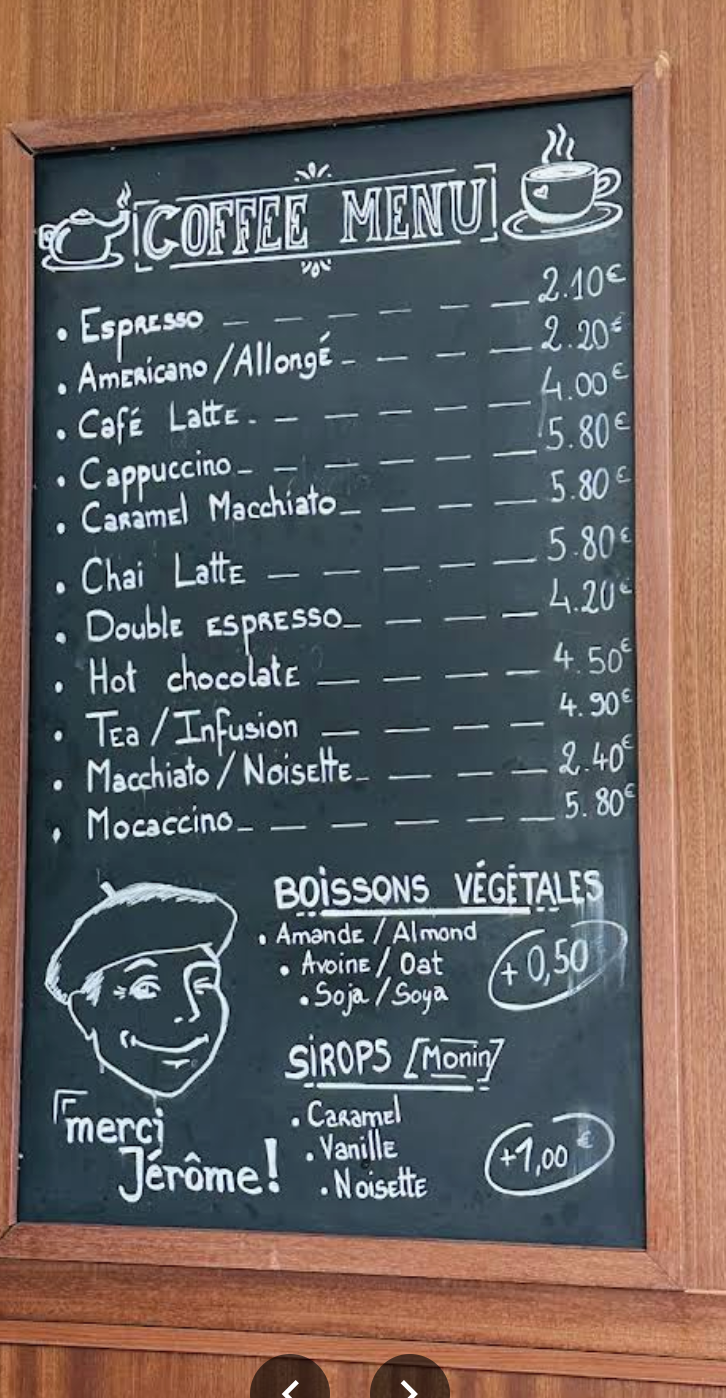 COFFEE MENU
• Espresso – – – – – – 2.10€
• Americano / Allongé – – – – 2.20€
• Café Latte – – – – – – 4.00€
• Cappuccino – – – – – – 5.80€
• Caramel Macchiato – – – – 5.80€
• Chai Latte – – – – – – 5.80€
• Double espresso – – – – 4.20€
• Hot chocolate – – – – – 4.50€
• Tea / Infusion – – – – – 4.90€
• Macchiato / Noisette – – – – 2.40€
• Mocaccino – – – – – – 5.80€
BOISSONS VÉGÉTALES
• Amande / Almond
• Avoine / Oat
• Soja / Soya
+ 0,50
SIROPS [Monin]
• Caramel
• Vanille
• Noisette
+1,00 €
merci
Jérôme!